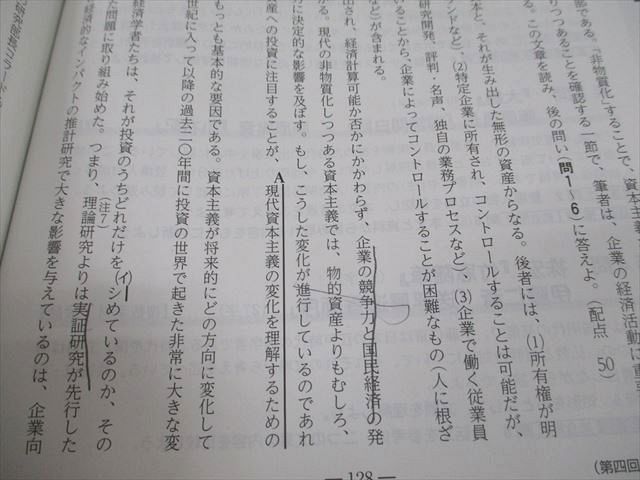 部である。「非物質化」することで、資本主
りつつあることを確認する一節で、筆者は、企業の経済活動に重
る。この文章を読み、後の問い(問1～6)に答えよ。(配点 50)
本と、それが生み出した無形の資産からなる。後者には、(1)所有権が明
ンドなど)、(2)特定企業に所有され、コントロールすることは可能だが、
研究開発、評判・名声、独自の業務プロセスなど)、(3)企業で働く従業員
ることから、企業によってコントロールすることが困難なもの(人に根ざ
など)が含まれる。
出され、経済計算可能か否かにかかわらず、企業の競争力と国民経済の発
に決定的な影響を及ぼす。もし、こうした変化が進行しているのであれ
る。現代の非物質化しつつある資本主義では、物的資産よりもむしろ、
産への投資に注目することが、A現代資本主義の変化を理解するための
もっとも基本的な要因である。資本主義が将来的にどの方向に変化して
世紀に入って以降の過去二〇年間に投資の世界で起きた非常に大きな変
経済学者たちは、それが投資のうちどれだけを(イ)シめているのか、その
た問題に取り組み始めた。つまり、理論研究よりは実証研究が先行した
(注7)
経済的なインパクトの推計研究で大きな影響を与えているのは、企業向
— 128 —
(第四回